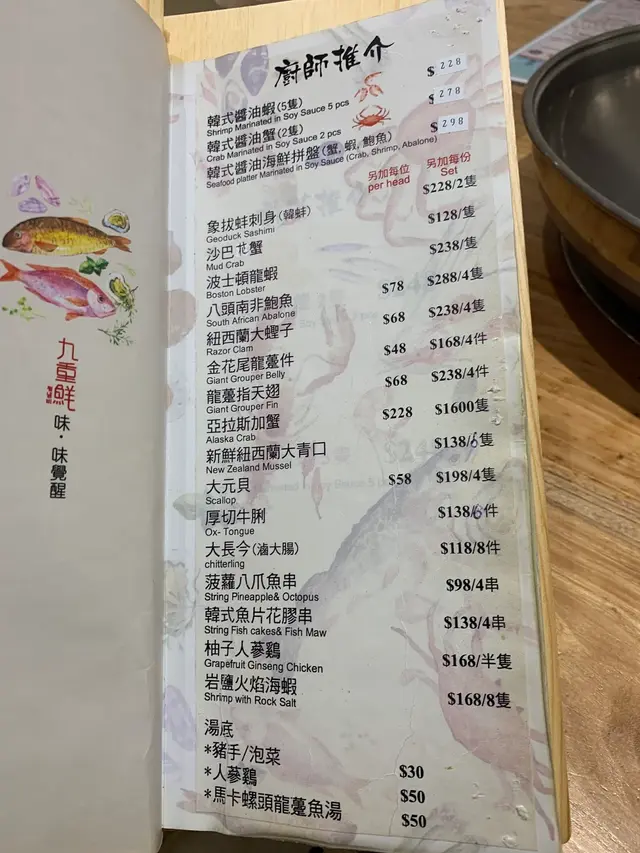 九重鮮
味・味覺醒
廚師推介
韓式醬油蝦(5隻) $228
Shrimp Marinated in Soy Sauce 5 pcs
韓式醬油蟹(2隻) $278
Crab Marinated in Soy Sauce 2 pcs
韓式醬油海鮮拼盤(蟹, 蝦, 鮑魚) $298
Seafood platter Marinated in Soy Sauce (Crab, Shrimp, Abalone)
另加每位 另加每份
per head Set
象拔蚌刺身(韓蚌) $228/2隻
Geoduck Sashimi
沙巴花蟹 $128/隻
Mud Crab
波士頓龍蝦 $238/隻
Boston Lobster
八頭南非鮑魚 $78 $288/4隻
South African Abalone
紐西蘭大蟶子 $68 $238/4隻
Razor Clam
金花尾龍躉件 $48 $168/4件
Giant Grouper Belly
龍躉指天翅 $68 $238/4件
Giant Grouper Fin
亞拉斯加蟹 $228 $1600隻
Alaska Crab
新鮮紐西蘭大青口 $138/6隻
New Zealand Mussel
大元貝 $58 $198/4隻
Scallop
厚切牛脷 $138/6件
Ox- Tongue
大長今(滷大腸) $118/8件
chitterling
菠蘿八爪魚串 $98/4串
String Pineapple& Octopus
韓式魚片花膠串 $138/4串
String Fish cakes& Fish Maw
柚子人蔘鷄 $168/半隻
Grapefruit Ginseng Chicken
岩鹽火焰海蝦 $168/8隻
Shrimp with Rock Salt
湯底
*豬手/泡菜 $30
*人蔘鷄 $50
*馬卡螺頭龍躉魚湯 $50